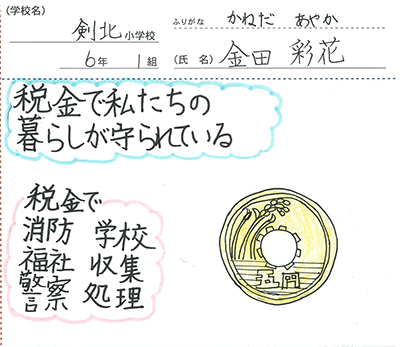 (学校名)
剣北小学校
6年 1組
ふりがな かねだ あやか
(氏 名) 金田 彩花
税金で私たちの
暮らしが守られている
税金で
消防 学校
福祉 収集
警察 処理
五円